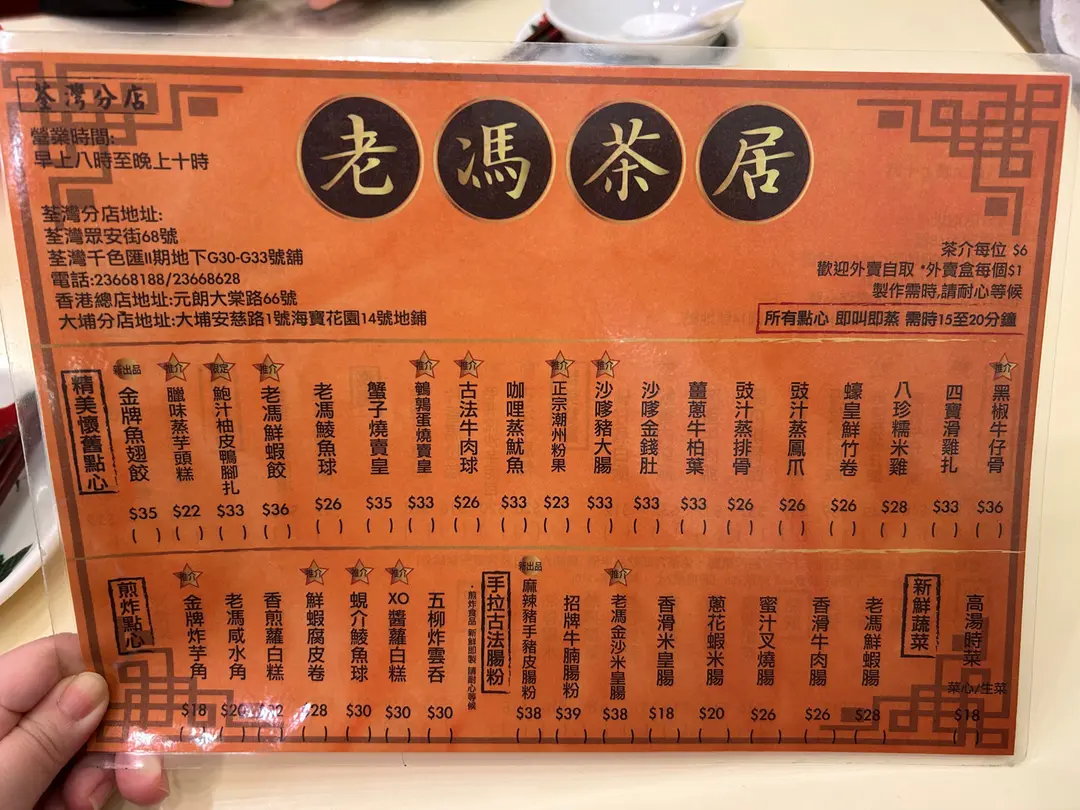 荃灣分店
營業時間:
早上八時至晚上十時
老馮茶居
荃灣分店地址:
荃灣眾安街68號
荃灣千色匯II期地下G30-G33號舖
電話:23668188/23668628
香港總店地址:元朗大棠路66號
大埔分店地址:大埔安慈路1號海寶花園14號地鋪
茶介每位 $6
歡迎外賣自取 *外賣盒每個$1
製作需時,請耐心等候
所有點心 即叫即蒸 需時15至20分鐘
精美懷舊點心
新出品 金牌魚翅餃 $35 ( )
推介 臘味蒸芋頭糕 $22 ( )
限定 鮑汁柚皮鴨腳扎 $33 ( )
推介 老馮鮮蝦餃 $36 ( )
老馮鯪魚球 $26 ( )
蟹子燒賣皇 $35 ( )
推介 鵪鶉蛋燒賣皇 $33 ( )
推介 古法牛肉球 $26 ( )
咖哩蒸魷魚 $33 ( )
推介 正宗潮州粉果 $23 ( )
推介 沙嗲豬大腸 $33 ( )
沙嗲金錢肚 $33 ( )
薑蔥牛柏葉 $33 ( )
豉汁蒸排骨 $26 ( )
豉汁蒸鳳爪 $26 ( )
蠔皇鮮竹卷 $26 ( )
八珍糯米雞 $28 ( )
四寶滑雞扎 $33 ( )
推介 黑椒牛仔骨 $36 ( )
煎炸點心
推介 金牌炸芋角 $18 ( )
老馮咸水角 $20 ( )
香煎蘿白糕 ( )
推介 鮮蝦腐皮卷 $28 ( )
推介 蜆介鯪魚球 $30 ( )
推介 XO醬蘿白糕 $30 ( )
五柳炸雲吞 $30 ( )
*煎炸食品 新鮮即製 請耐心等候
手拉古法腸粉
新出品 麻辣豬手豬皮腸粉 $38 ( )
招牌牛腩腸粉 $39 ( )
推介 老馮金沙米皇腸 $38 ( )
香滑米皇腸 $18 ( )
蔥花蝦米腸 $20 ( )
蜜汁叉燒腸 $26 ( )
香滑牛肉腸 $26 ( )
老馮鮮蝦腸 $28 ( )
新鮮蔬菜
高湯時菜
菜心/生菜
$18 ( )